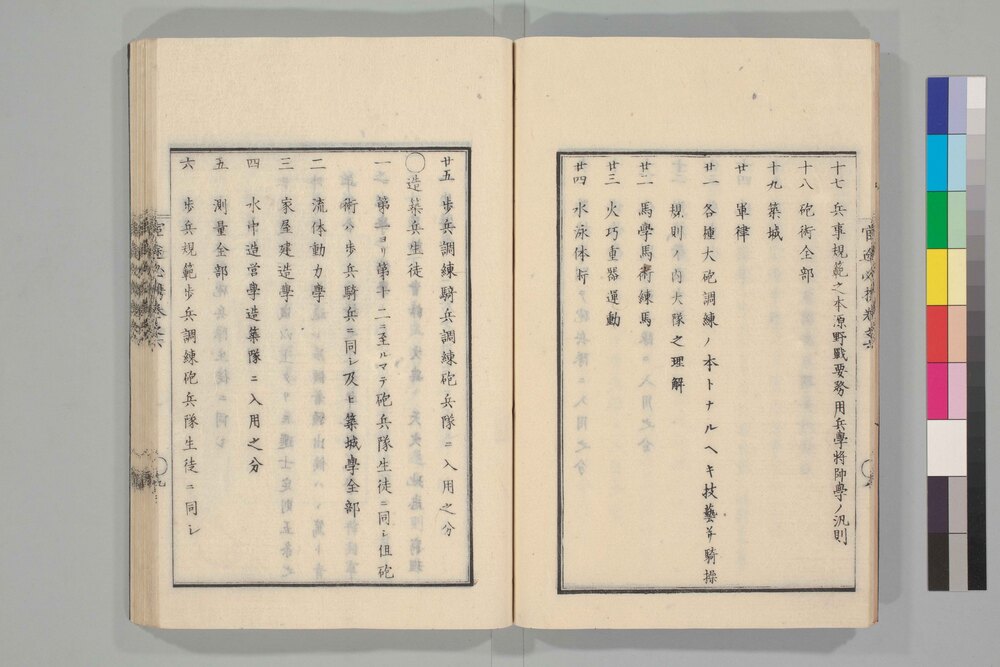 十七 兵事規範之本源野戰要務用兵學將帥學ノ汎則
十八 砲術全部
十九 築城
廿 軍律
廿一 各種大砲調練ノ本トナルヘキ技藝并騎操
規則ノ内大隊之理解
廿二 馬學馬術練馬
廿三 火巧重器運動
廿四 水泳体術
廿五 歩兵調練騎兵調練砲兵隊ニ入用之分
〇造築兵生徒
一 第一ヨリ第十二ニ至ルマテ砲兵隊生徒ニ同シ但砲
術ハ歩兵騎兵ニ同シ及ヒ築城學全部
二 流体動力學
三 家屋建造學
四 水中造営學造築隊ニ入用之分
五 測量全部
六 歩兵規範歩兵調練砲兵隊生徒ニ同シ